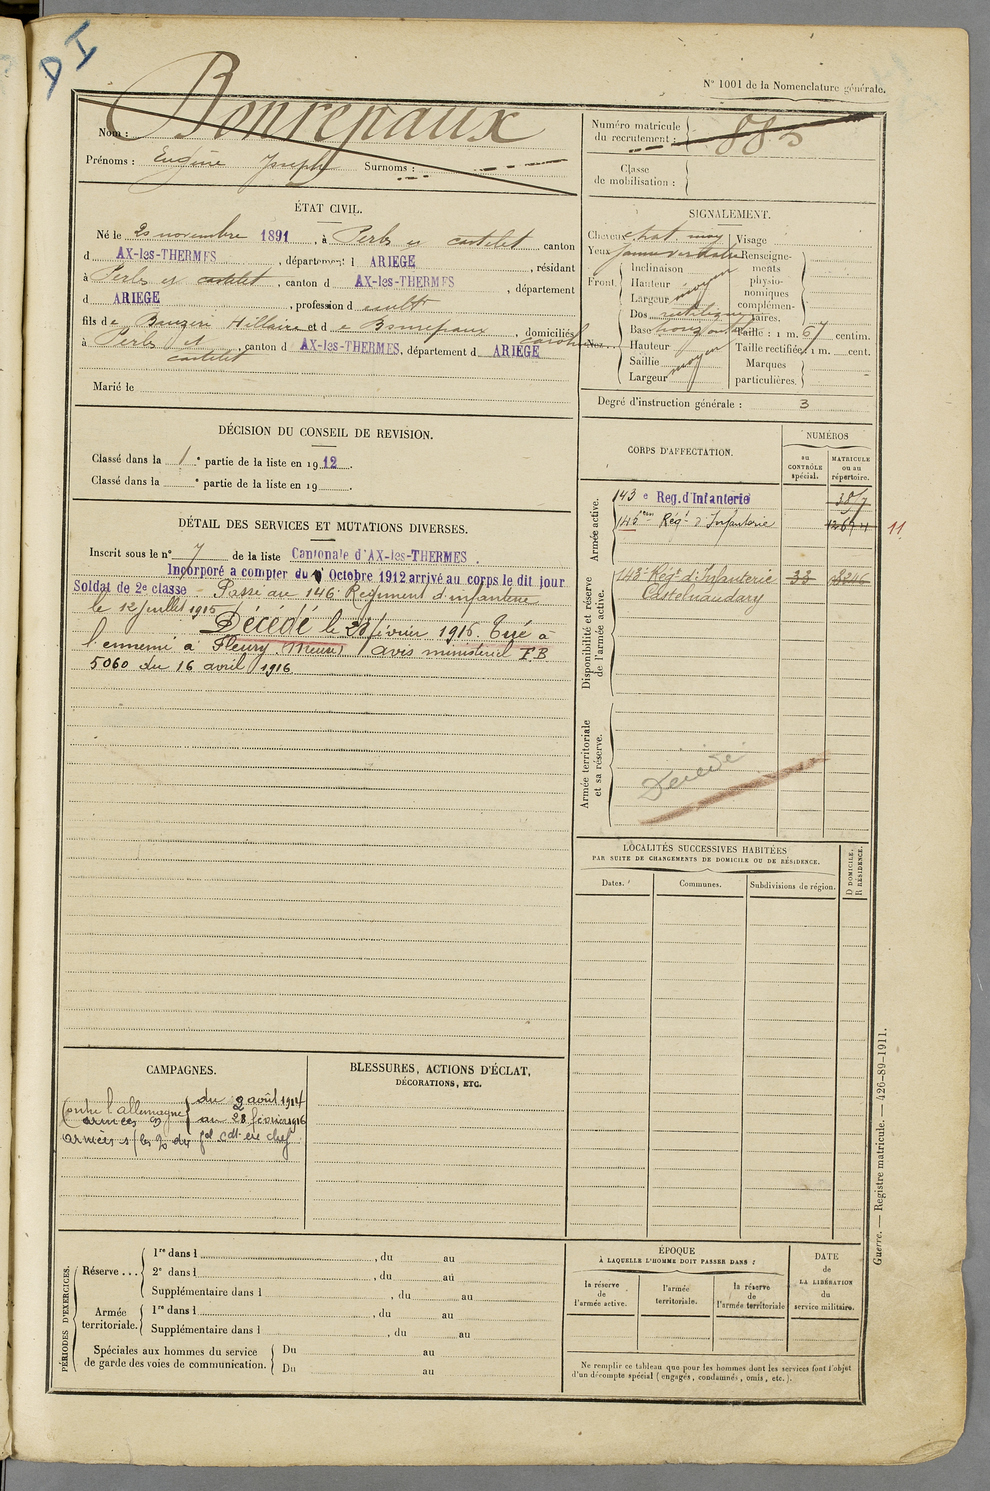 DI
N° 1001 de la Nomenclature générale.
Nom : Bonrepaux
Prénoms : Eugène Joseph Surnoms :
Numéro matricule du recrutement : 885
Classe de mobilisation :
ÉTAT CIVIL.
Né le 20 novembre 1891, à Perles et castelet canton
d AX-les-THERMES, département d ARIEGE, résidant
à Perles et castelet, canton d AX-les-THERMES, département
d ARIEGE, profession d cult
fils de Hillaire et d e Bonrepaux, domiciliés
à Perles et castelet, canton d AX-les-THERMES, département d ARIEGE
Marié le
SIGNALEMENT.
Cheveux chat moy
Yeux
Front.
Inclinaison
Hauteur
Largeur moyen
Nez.
Dos rectiligne
Base horizontal
Hauteur
Saillie moyen
Largeur
Visage
Renseignements physionomiques complémentaires.
Taille : 1 m. 67 centim.
Taille rectifiée : 1 m. cent.
Marques particulières.
Degré d'instruction générale : 3
DÉCISION DU CONSEIL DE REVISION.
Classé dans la 1 e partie de la liste en 1912.
Classé dans la e partie de la liste en 19 .
DÉTAIL DES SERVICES ET MUTATIONS DIVERSES.
Inscrit sous le n° 7 de la liste Cantonale d'AX-les-THERMES.
Incorporé a compter du Octobre 1912 arrivé au corps le dit jour
Soldat de 2e classe Passé au 146e Régiment d'infanterie
le 12 juillet 1915 Décédé le 28 février 1916. Tué à
l'ennemi à Fleury (Meuse) avis ministériel FB
5060 du 16 avril 1916
CORPS D'AFFECTATION.
NUMÉROS
au CONTRÔLE spécial.
MATRICULE ou au répertoire.
Armée active.
143 e Reg. d'Infanterie
146ème Régt d'Infanterie
11
Disponibilité et réserve de l'armée active.
143e Régt d'Infanterie 33
Castelnaudary
Armée territoriale et sa réserve.
Décédé
LOCALITÉS SUCCESSIVES HABITÉES
PAR SUITE DE CHANGEMENTS DE DOMICILE OU DE RÉSIDENCE.
Dates. Communes. Subdivisions de région. D DOMICILE. R RÉSIDENCE.
CAMPAGNES.
Contre l'allemagne du 2 août 1914
au 28 février 1916
BLESSURES, ACTIONS D'ÉCLAT,
DÉCORATIONS, ETC.
PÉRIODES D'EXERCICES.
Réserve...
1re dans l , du au
2e dans l , du au
Supplémentaire dans l , du au
Armée territoriale.
1re dans l , du au
Supplémentaire dans l , du au
Spéciales aux hommes du service de garde des voies de communication.
Du au
Du au
ÉPOQUE
À LAQUELLE L'HOMME DOIT PASSER DANS :
la réserve de l'armée active.
l'armée territoriale.
la réserve de l'armée territoriale
DATE de LA LIBÉRATION du service militaire.
Ne remplir ce tableau que pour les hommes dont les services font l'objet
d'un décompte spécial (engagés, condamnés, omis, etc.).
Guerre. — Registre matricule. — 426-89-1911.